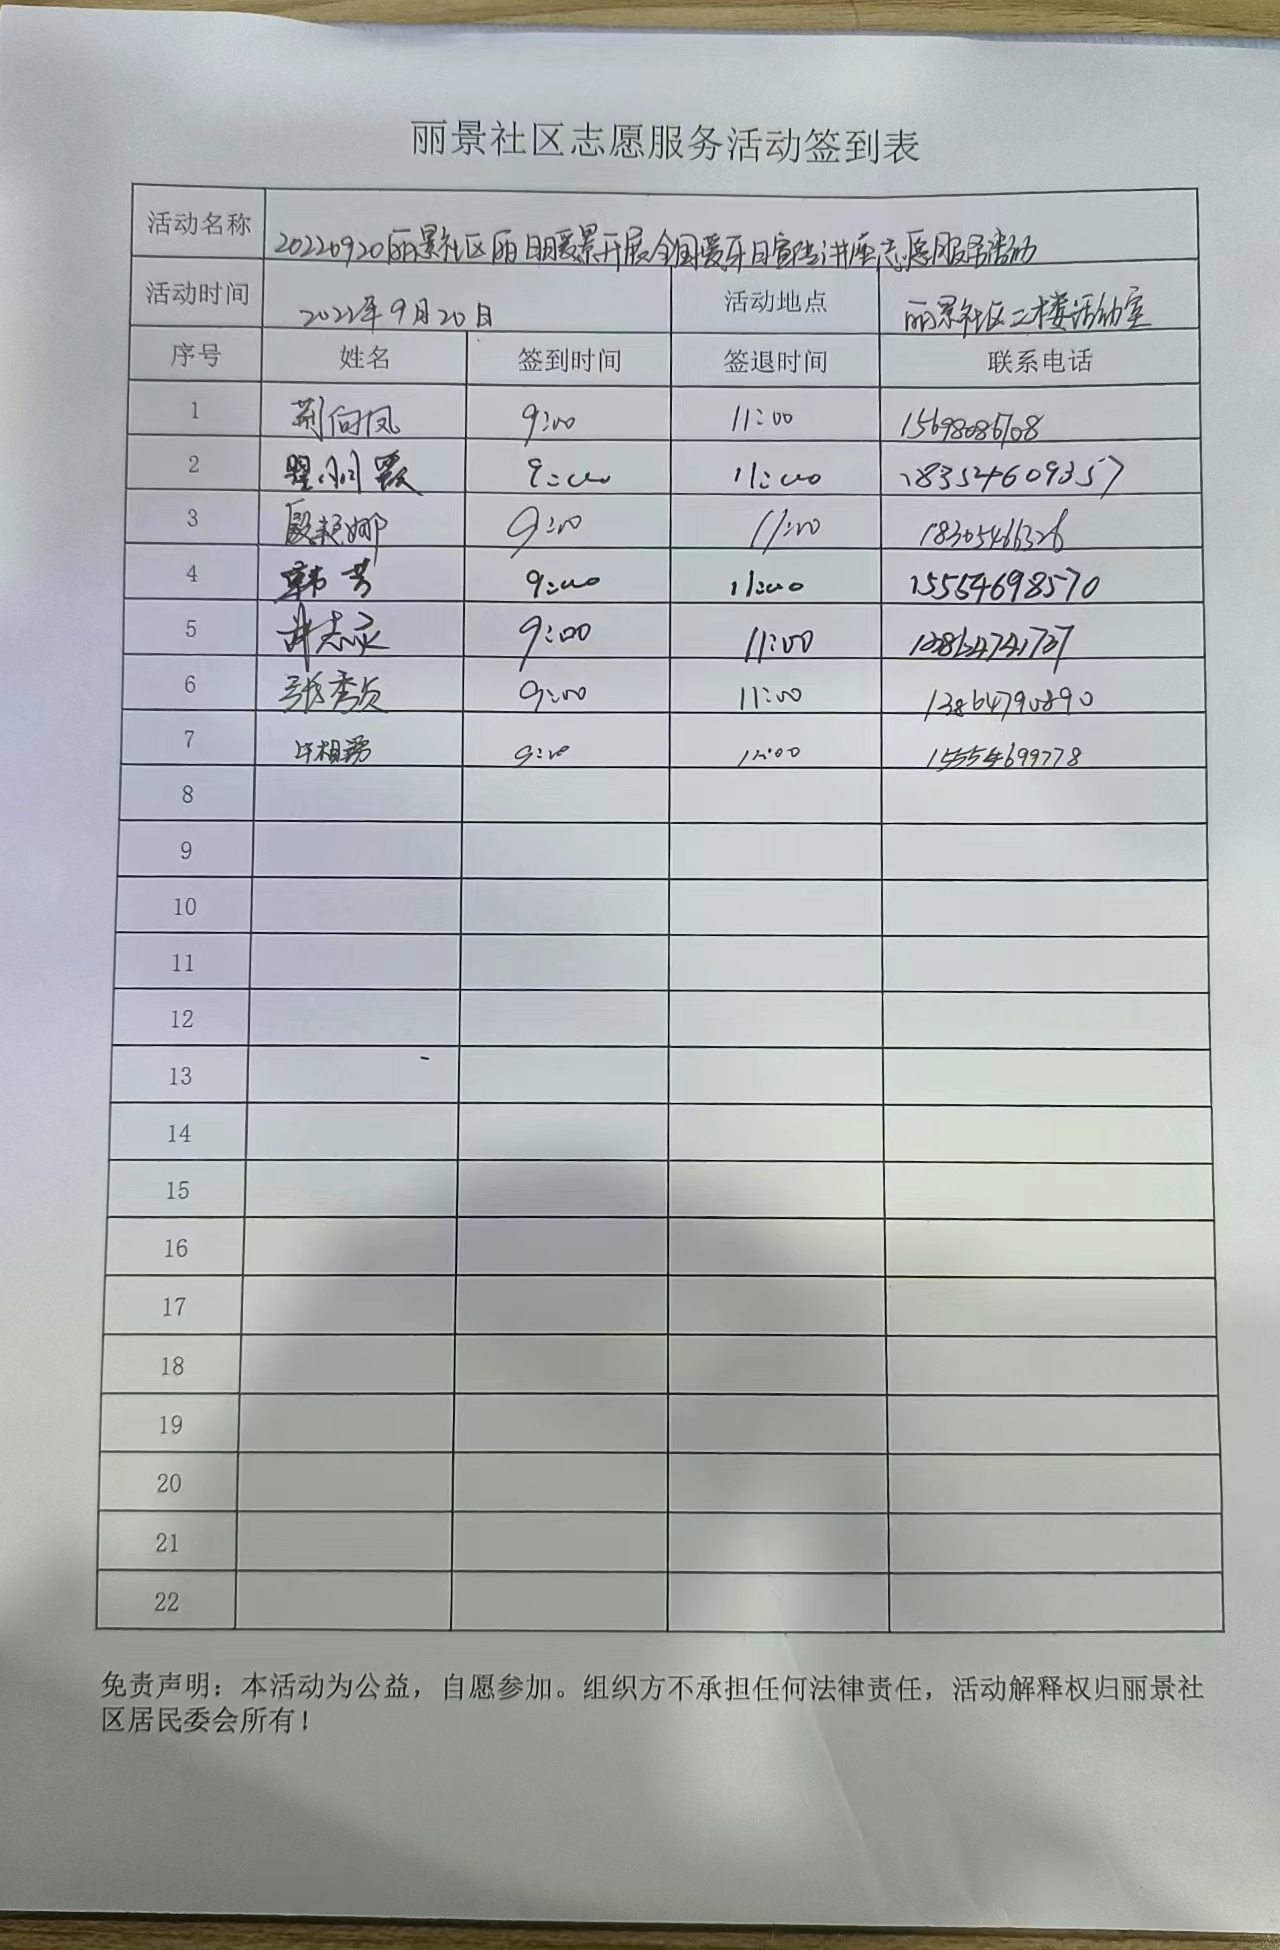 丽景社区志愿服务活动签到表
活动名称 20220920丽景社区丽日暖景开展全国爱牙日宣传讲座志愿服务活动
活动时间 2022年9月20日 活动地点 丽景社区二楼活动室
序号 姓名 签到时间 签退时间 联系电话
1 荆向凤 9:00 11:00 15698086708
2 9:00 11:00 18354609357
3 9:00 11:00
4 韩芳 9:00 11:00 15554698570
5 9:00 11:00
6 张秀贞 9:00 11:00 13864790890
7 9:00 15554699778
8
9
10
11
12
13
14
15
16
17
18
19
20
21
22
免责声明：本活动为公益，自愿参加。组织方不承担任何法律责任，活动解释权归丽景社
区居民委会所有！